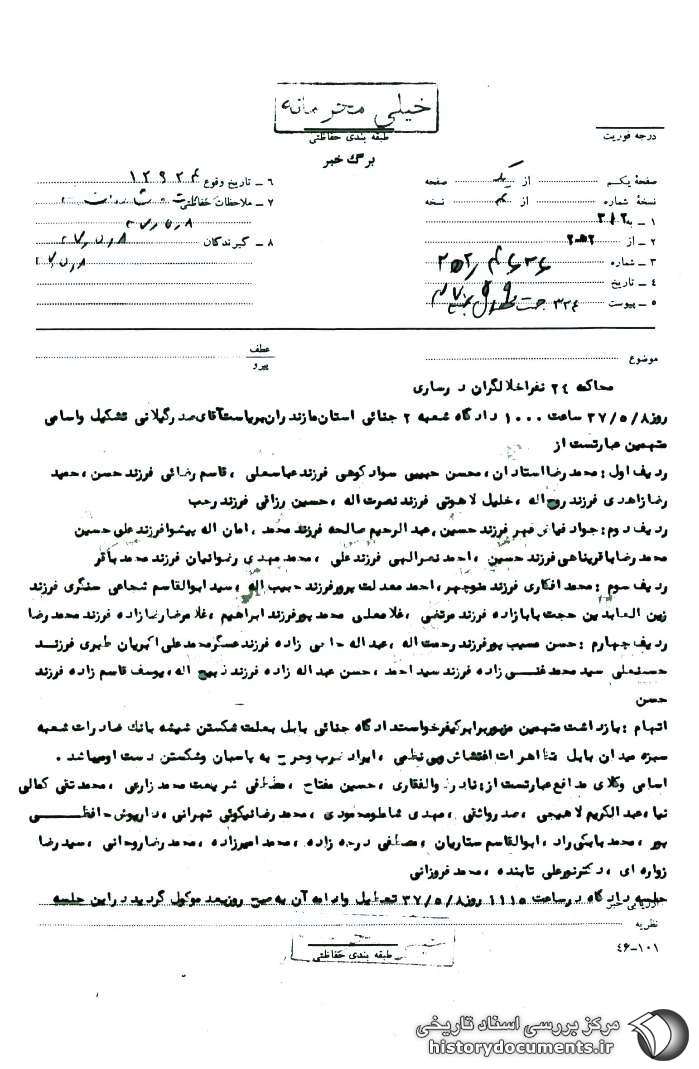 خیلی محرمانه
طبقه بندی حفاظتی
درجه فوریت
برگ خبر
صفحهٔ یکم از یک صفحه
نسخهٔ شماره از نسخه
۱ ـ به ۳۱۲
۲ ـ از
۳ ـ شماره
٤ ـ تاریخ
۵ ـ پیوست
٦ ـ تاریخ وقوع
۷ ـ ملاحظات حفاظتی
۳۷٫۵٫۸
۸ ـ گیرندگان ۳۷٫۵٫۸
۳۷٫۵٫۸
موضوع
عطف
پیرو
محاکمه ۲٤ نفر اخلالگران در ساری
روز ۳۷/۵/۸ ساعت ۱۰۰۰ دادگاه شعبه ۲ جنائی استان مازندران بریاست آقای صدرگیلانی تشکیل و اسامی
متهمین عبارتست از
ردیف اول : محمدرضا استادان ، محسن حبیبی سوادکوهی فرزند عباسعلی ، قاسم رضائی فرزند حسن ، حمید
رضا زاهدی فرزند روح اله ، خلیل لاهوتی فرزند نصرت اله ، حسین رزاقی فرزند رجب
ردیف دوم : جواد فرزند حسین ، عبدالرحیم صالحه فرزند محمد ، امان اله پیشوا فرزند علی حسین
محمدرضا باقرپناهی فرزند حسین ، احمد نصرالهی فرزند علی ، محمد مهدی رضوانیان فرزند محمد باقر
ردیف سوم : محمد افکاری فرزند منوچهر ، احمد معدلت پرور فرزند حبیب اله ، سید ابوالقاسم شجاعی سنگری فرزند
زین العابدین حجت بابازاده فرزند مرتضی ، غلامعلی محمدپور فرزند ابراهیم ، غلامرضا رضازاده فرزند محمدرضا
ردیف چهارم : حسن مسیب پور فرزند رحمت اله ، عبداله زاده فرزند عسگر محمدعلی اکبریان طبری فرزند
حسنعلی سید محمد غنی زاده فرزند سید احمد ، حسن عبداله زاده فرزند ذبیح اله ، یوسف قاسم زاده فرزند
حسن
اتهام : بازداشت متهمین مزبور برابر کیفرخواست دادگاه جنائی بابل بعلت شکستن شیشه بانک صادرات شعبه
سبزه میدان بابل تظاهرات اغتشاش وبی نظمی ، ایراد ضرب وجرح به پاسبان وشکستن دست او میباشد .
اسامی وکلای مدافع عبارتست از : نادر ذوالفقاری ، حسین مفتاح ، مصطفی شریعت محمد زارعی ، محمد تقی کمالی
نیا ، عبدالکریم لاهیجی ، صدر واثقی ، مهدی شاملو محمودی ، محمدرضا نیکوئی تهرانی ، داریوش حافظی
پور ، محمد بابکی راد ، ابوالقاسم ستاریان ، مصطفی درجه زاده ، محمد امیرزاده ، محمدرضا روحانی ، سیدرضا
زواره ای ، دکتر نورعلی تابنده ، محمد فروزانی
جلسه دادگاه در ساعت ۱۱۱۵ روز ۳۷/۵/۸ تعطیل وادامه آن به صبح روز بعد موکول گردید در این جلسه
ارزیابی خبر
نظریه
طبقه بندی حفاظتی
٤٦-۱۰۱
مرکز بررسی اسناد تاریخی
historydocuments.ir